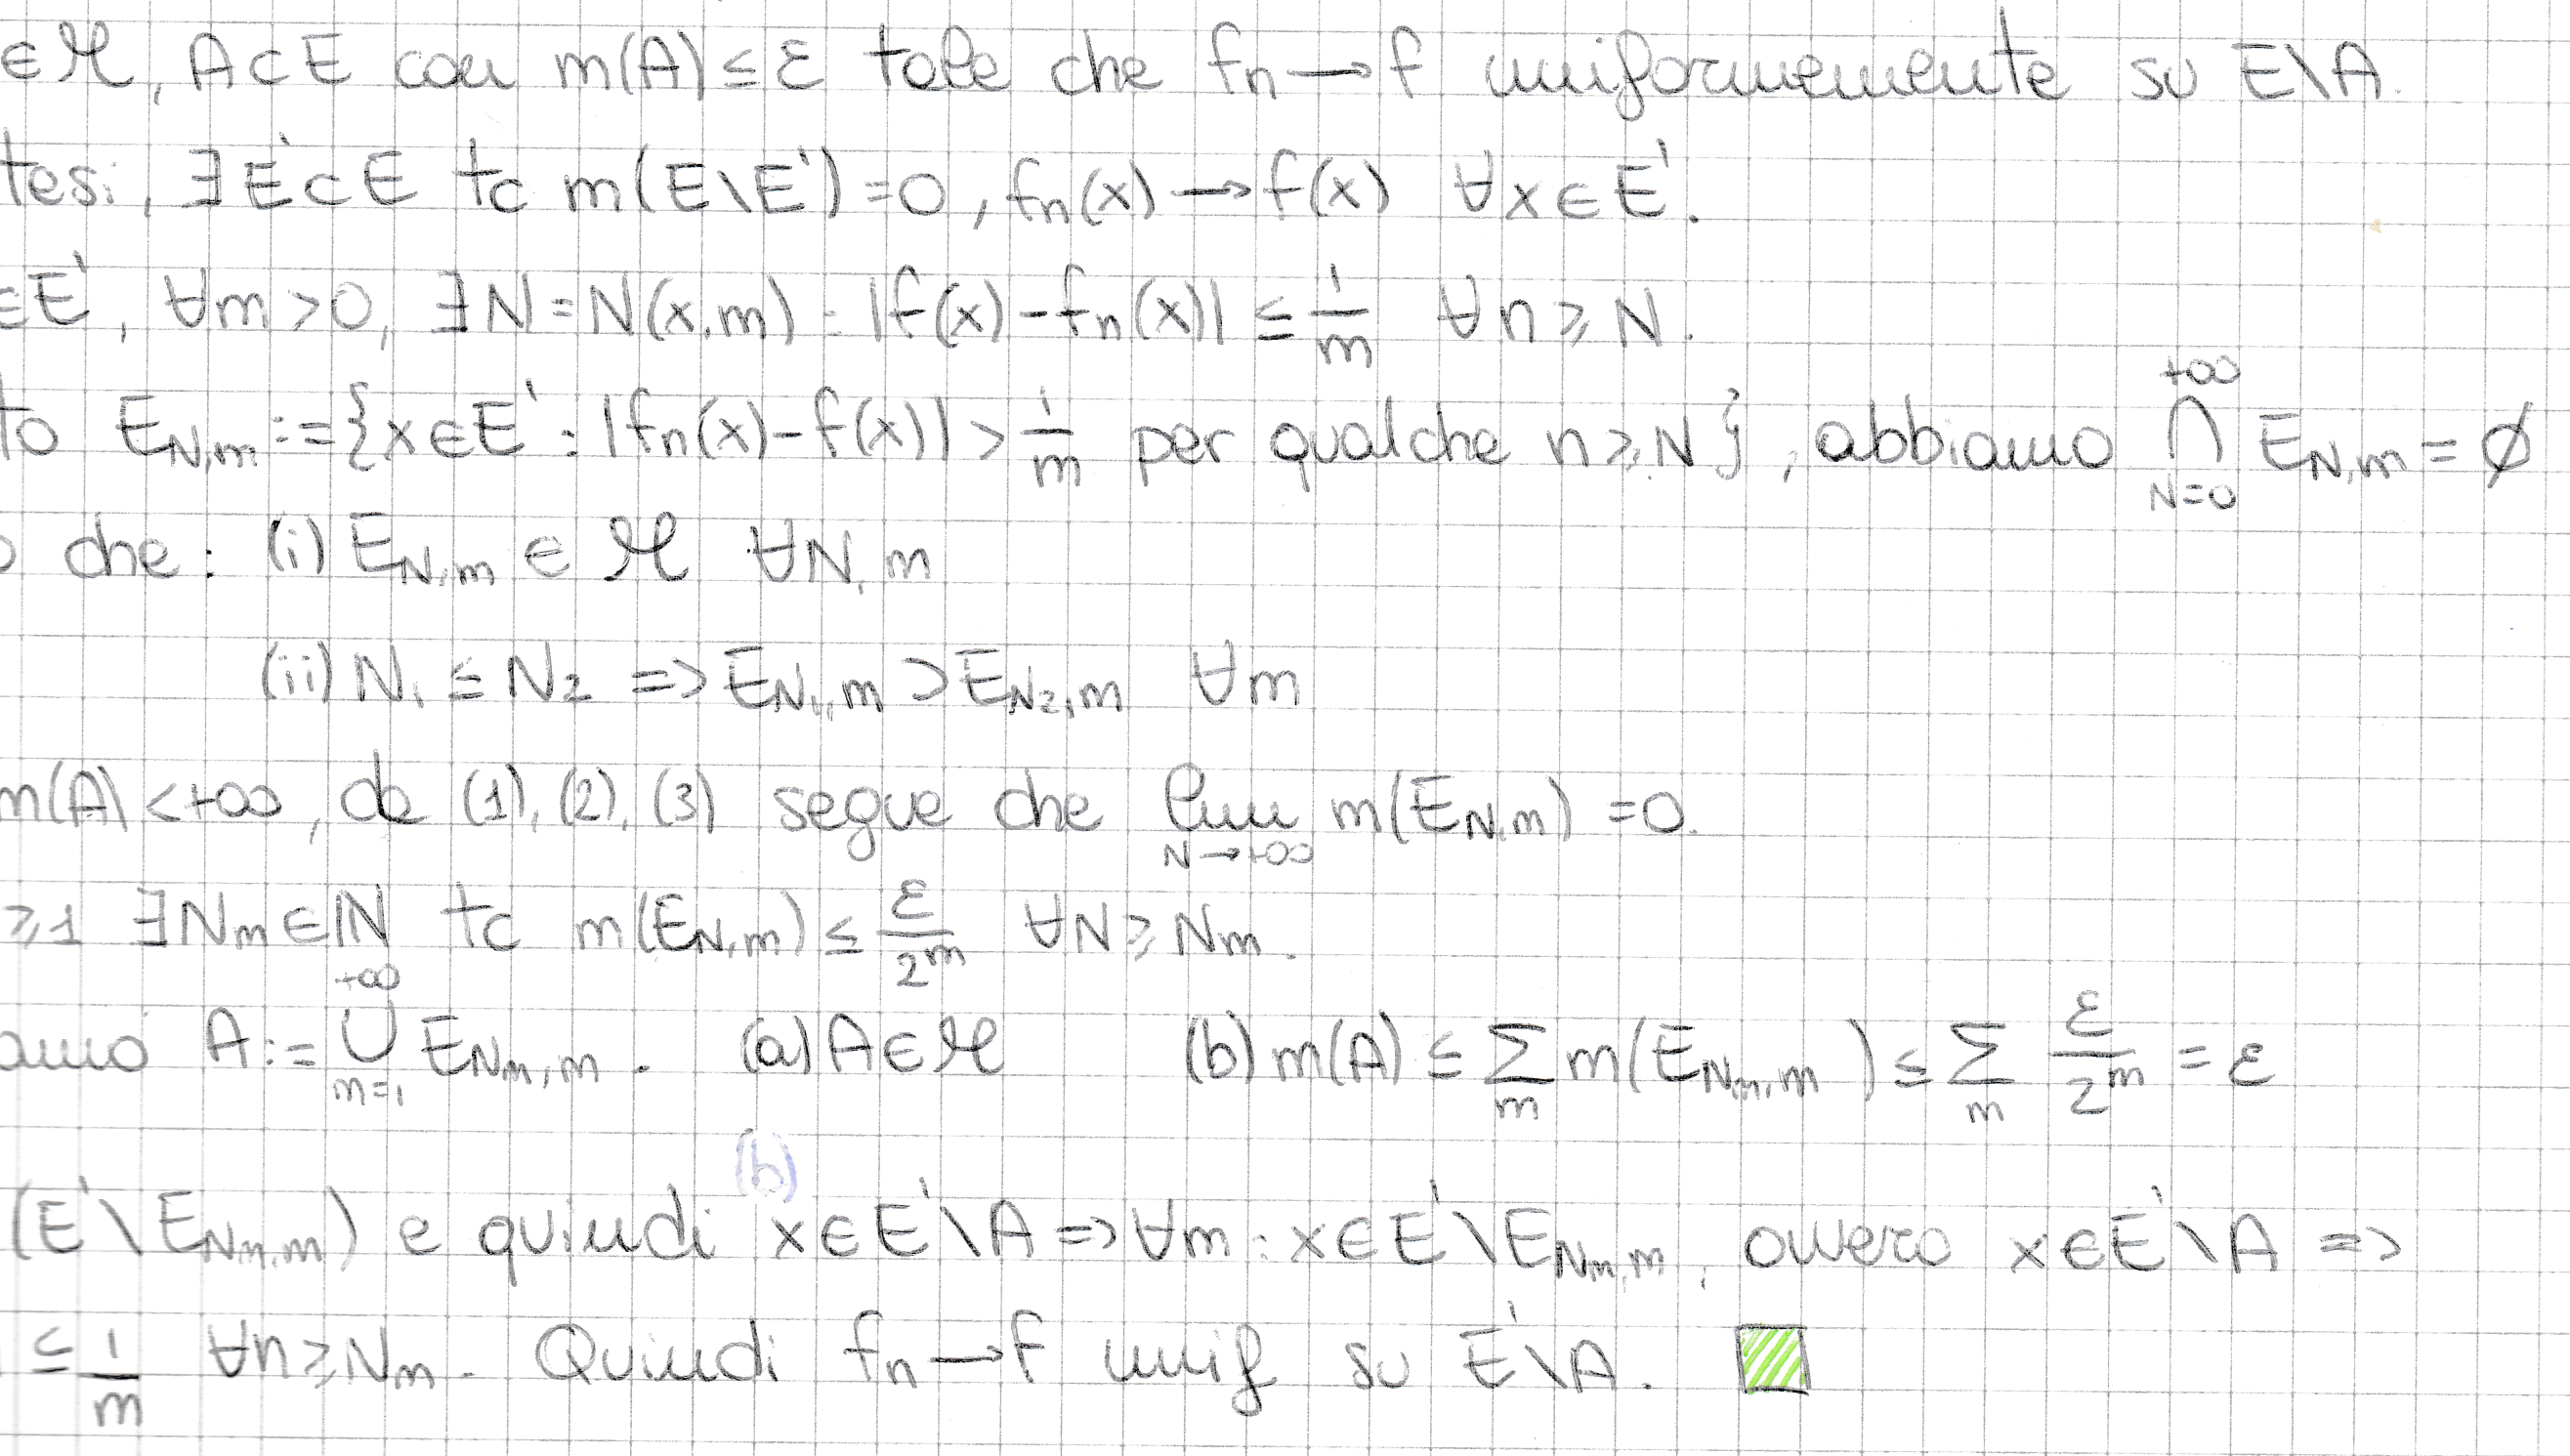 ∈ℳ, A⊂E con m(A)≤ε tale che fn→f uniformemente su E\A.
tesi, ∃E'⊂E tc m(E\E')=0, fn(x)→f(x) ∀x∈E'.
∈E', ∀m>0, ∃N=N(x,m): |f(x)-fn(x)| ≤ 1/m ∀n≥N.
to E_{N,m}:={x∈E': |fn(x)-f(x)| > 1/m per qualche n≥N}, abbiamo ⋂_{N=0}^{+∞} E_{N,m}=∅
o che: (i) E_{N,m} ∈ ℳ ∀N,m
(ii) N₁ ≤ N₂ => E_{N₁,m} ⊃ E_{N₂,m} ∀m
m(A)<+∞, da (1), (2), (3) segue che lim_{N→+∞} m(E_{N,m}) =0.
≥1 ∃N_m∈ℕ tc m(E_{N,m}) ≤ ε/2^m ∀N≥N_m.
amo A:= ⋃_{m=1}^{+∞} E_{N_m,m}. (a) A∈ℳ (b) m(A) ≤ ∑_m m(E_{N_m,m}) ≤ ∑_m ε/2^m = ε
(b)
(E'\E_{N_m,m}) e quindi x∈E'\A => ∀m: x∈E'\E_{N_m,m}, ovvero x∈E'\A =>
≤ 1/m ∀n≥N_m. Quindi fn→f unif su E'\A.